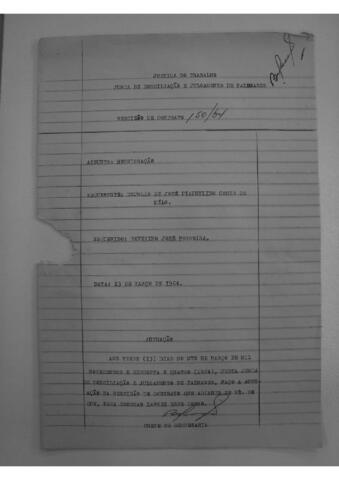 JUSTIÇA DO TRABALHO
JUNTA DE CONCILIAÇÃO E JULGAMENTO DE PALMARES
RESCISÃO DE CONTRATO 150/64
ASSUNTO: HOMOLOGAÇÃO
REQUERENTE: ESPÓLIO DE JOSÉ PIAUHYLINO GOMES DE
MÉLO.
REQUERIDO: SEVERINO JOSÉ FERREIRA.
DATA: 23 DE MARÇO DE 1964.
AUTUAÇÃO
AOS (23) DIAS DO MÊS DE MARÇO DE MIL
NOVECENTOS E SESSENTA E QUATRO (1964), NESTA JUNTA
DE CONCILIAÇÃO E JULGAMENTO DE PALMARES, FAÇO A AUTU-
AÇÃO DA RESCISÃO DE CONTRATO QUE ADIANTE SE VÊ. DO
QUE, PARA CONSTAR LAVREI ESTE TERMO.
CHEFE DE SECRETARIA